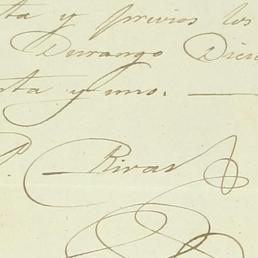 ta y previos los
Durango Dicie
nta y uno. —
P. Rivas